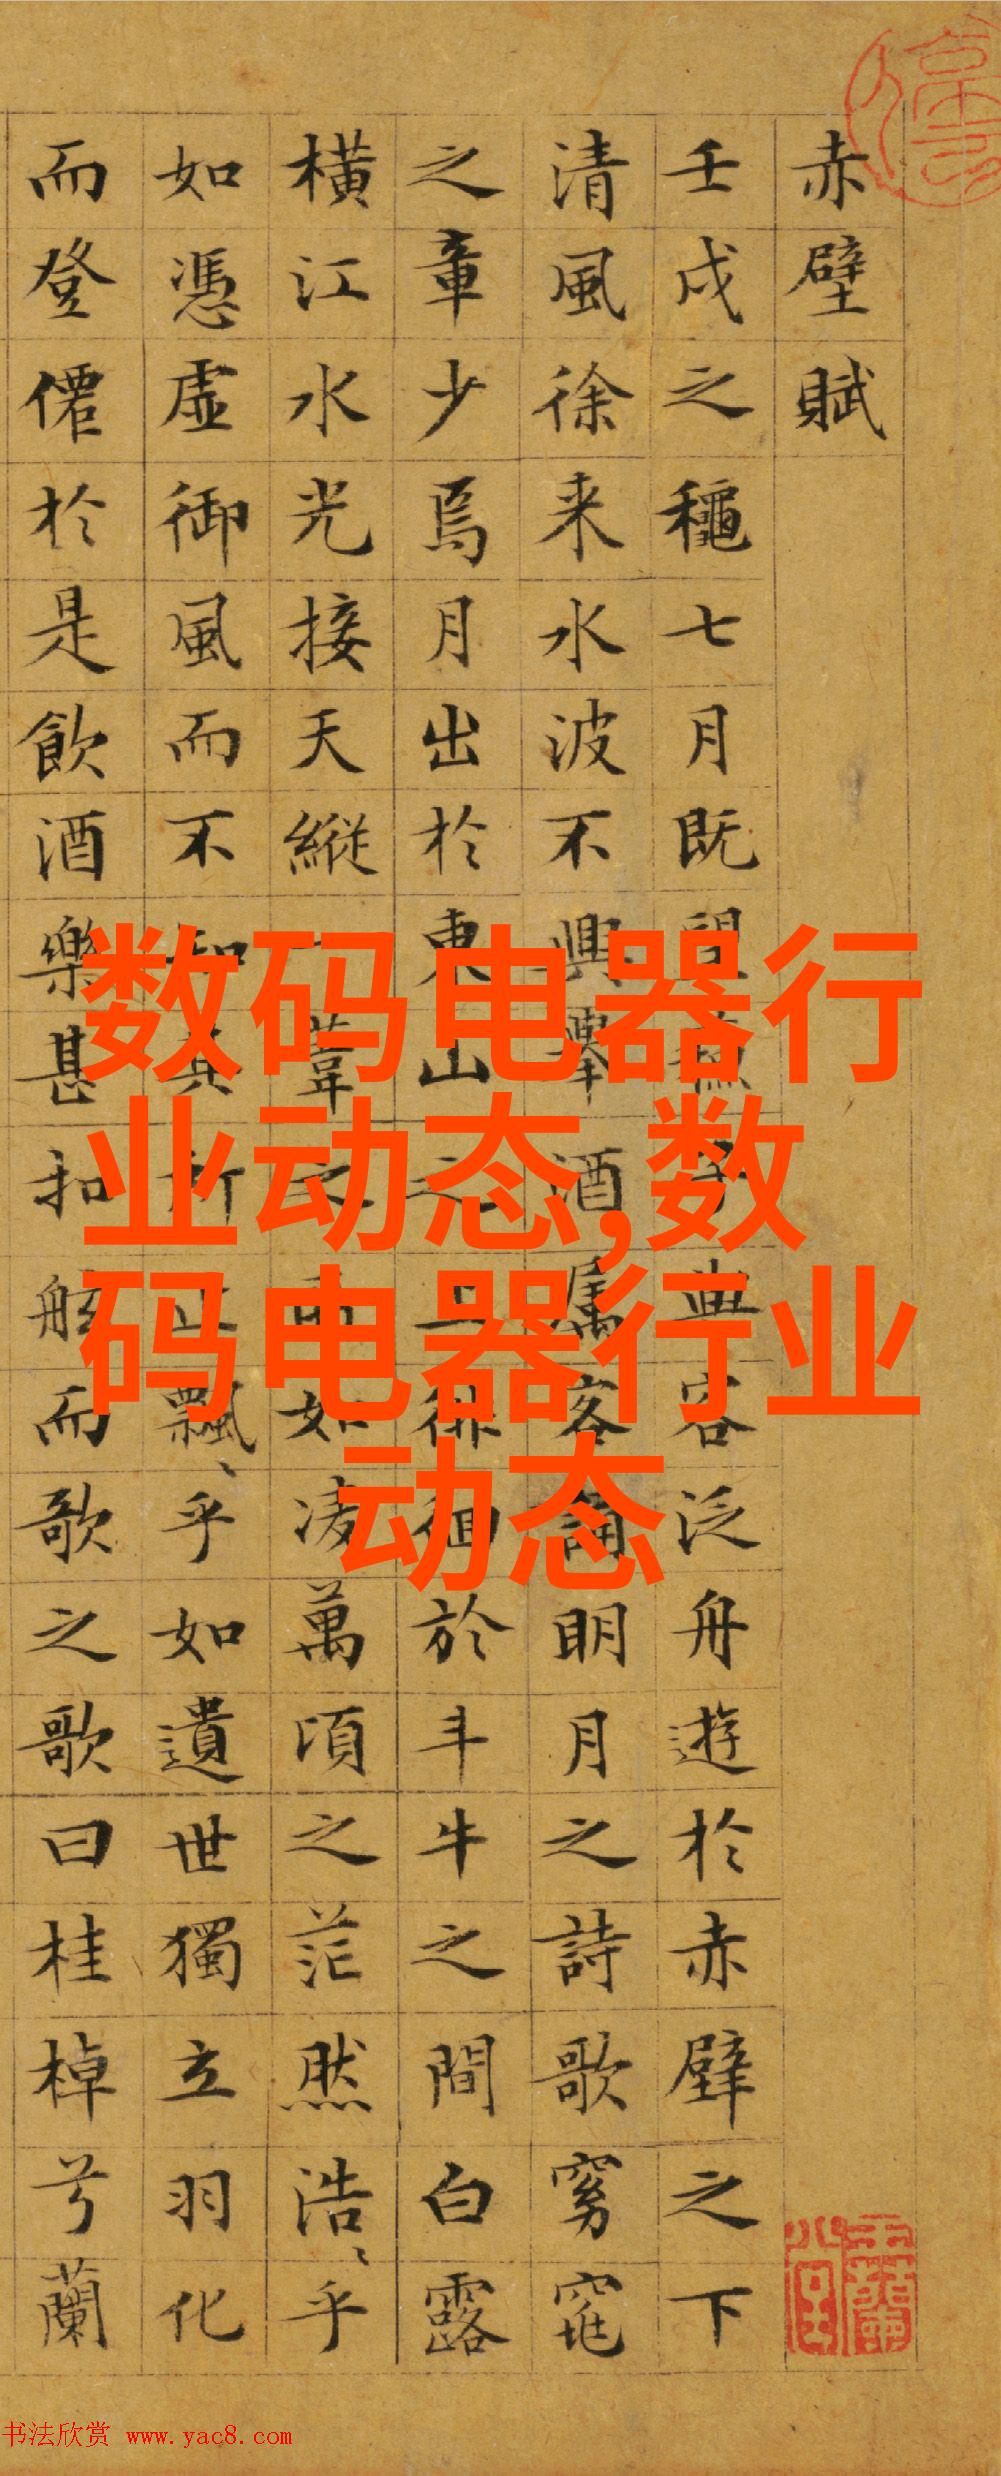 赤壁賦
壬戌之穐七月既望蘇子與客泛舟遊於赤壁之下
清風徐来水波不興舉酒属客誦明月之詩歌窈窕
之章少焉月出於東山之上徘徊於斗牛之間白露
横江水光接天縱一葦之所如凌萬頃之茫然浩〻乎
如憑虚御風而不知其所止飄〻乎如遺世獨立羽化
而登僊於是飲酒樂甚扣舷而歌之歌曰桂棹兮蘭
数码电器行
业动态,数
码电器行业
动态
书法欣赏 www.yac8.com